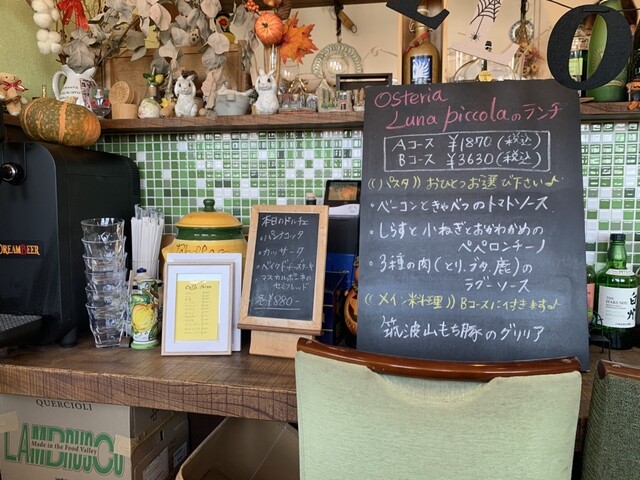 Osteria
Luna piccolaのランチ
Aコース ¥1870(税込)
Bコース ¥3630(税込)
((パスタ)) おひとつお選び下さい♪
・ベーコンときゃべつのトマトソース
・しらすと小ねぎとおかわかめの
ペペロンチーノ
・3種の肉(とり、ブタ、鹿)の
ラグーソース
((メイン料理)) Bコースに付きます♪
筑波山もち豚のグリリア
本日のドルチェ
・パンナコッタ
・カッサータ
・ベイクドチーズケーキ
マスカルポーネの
セミフレッド
各¥880-
DREAMBEER
QUERCIOLI
LAMBRUSCO
Made in the Food Valley